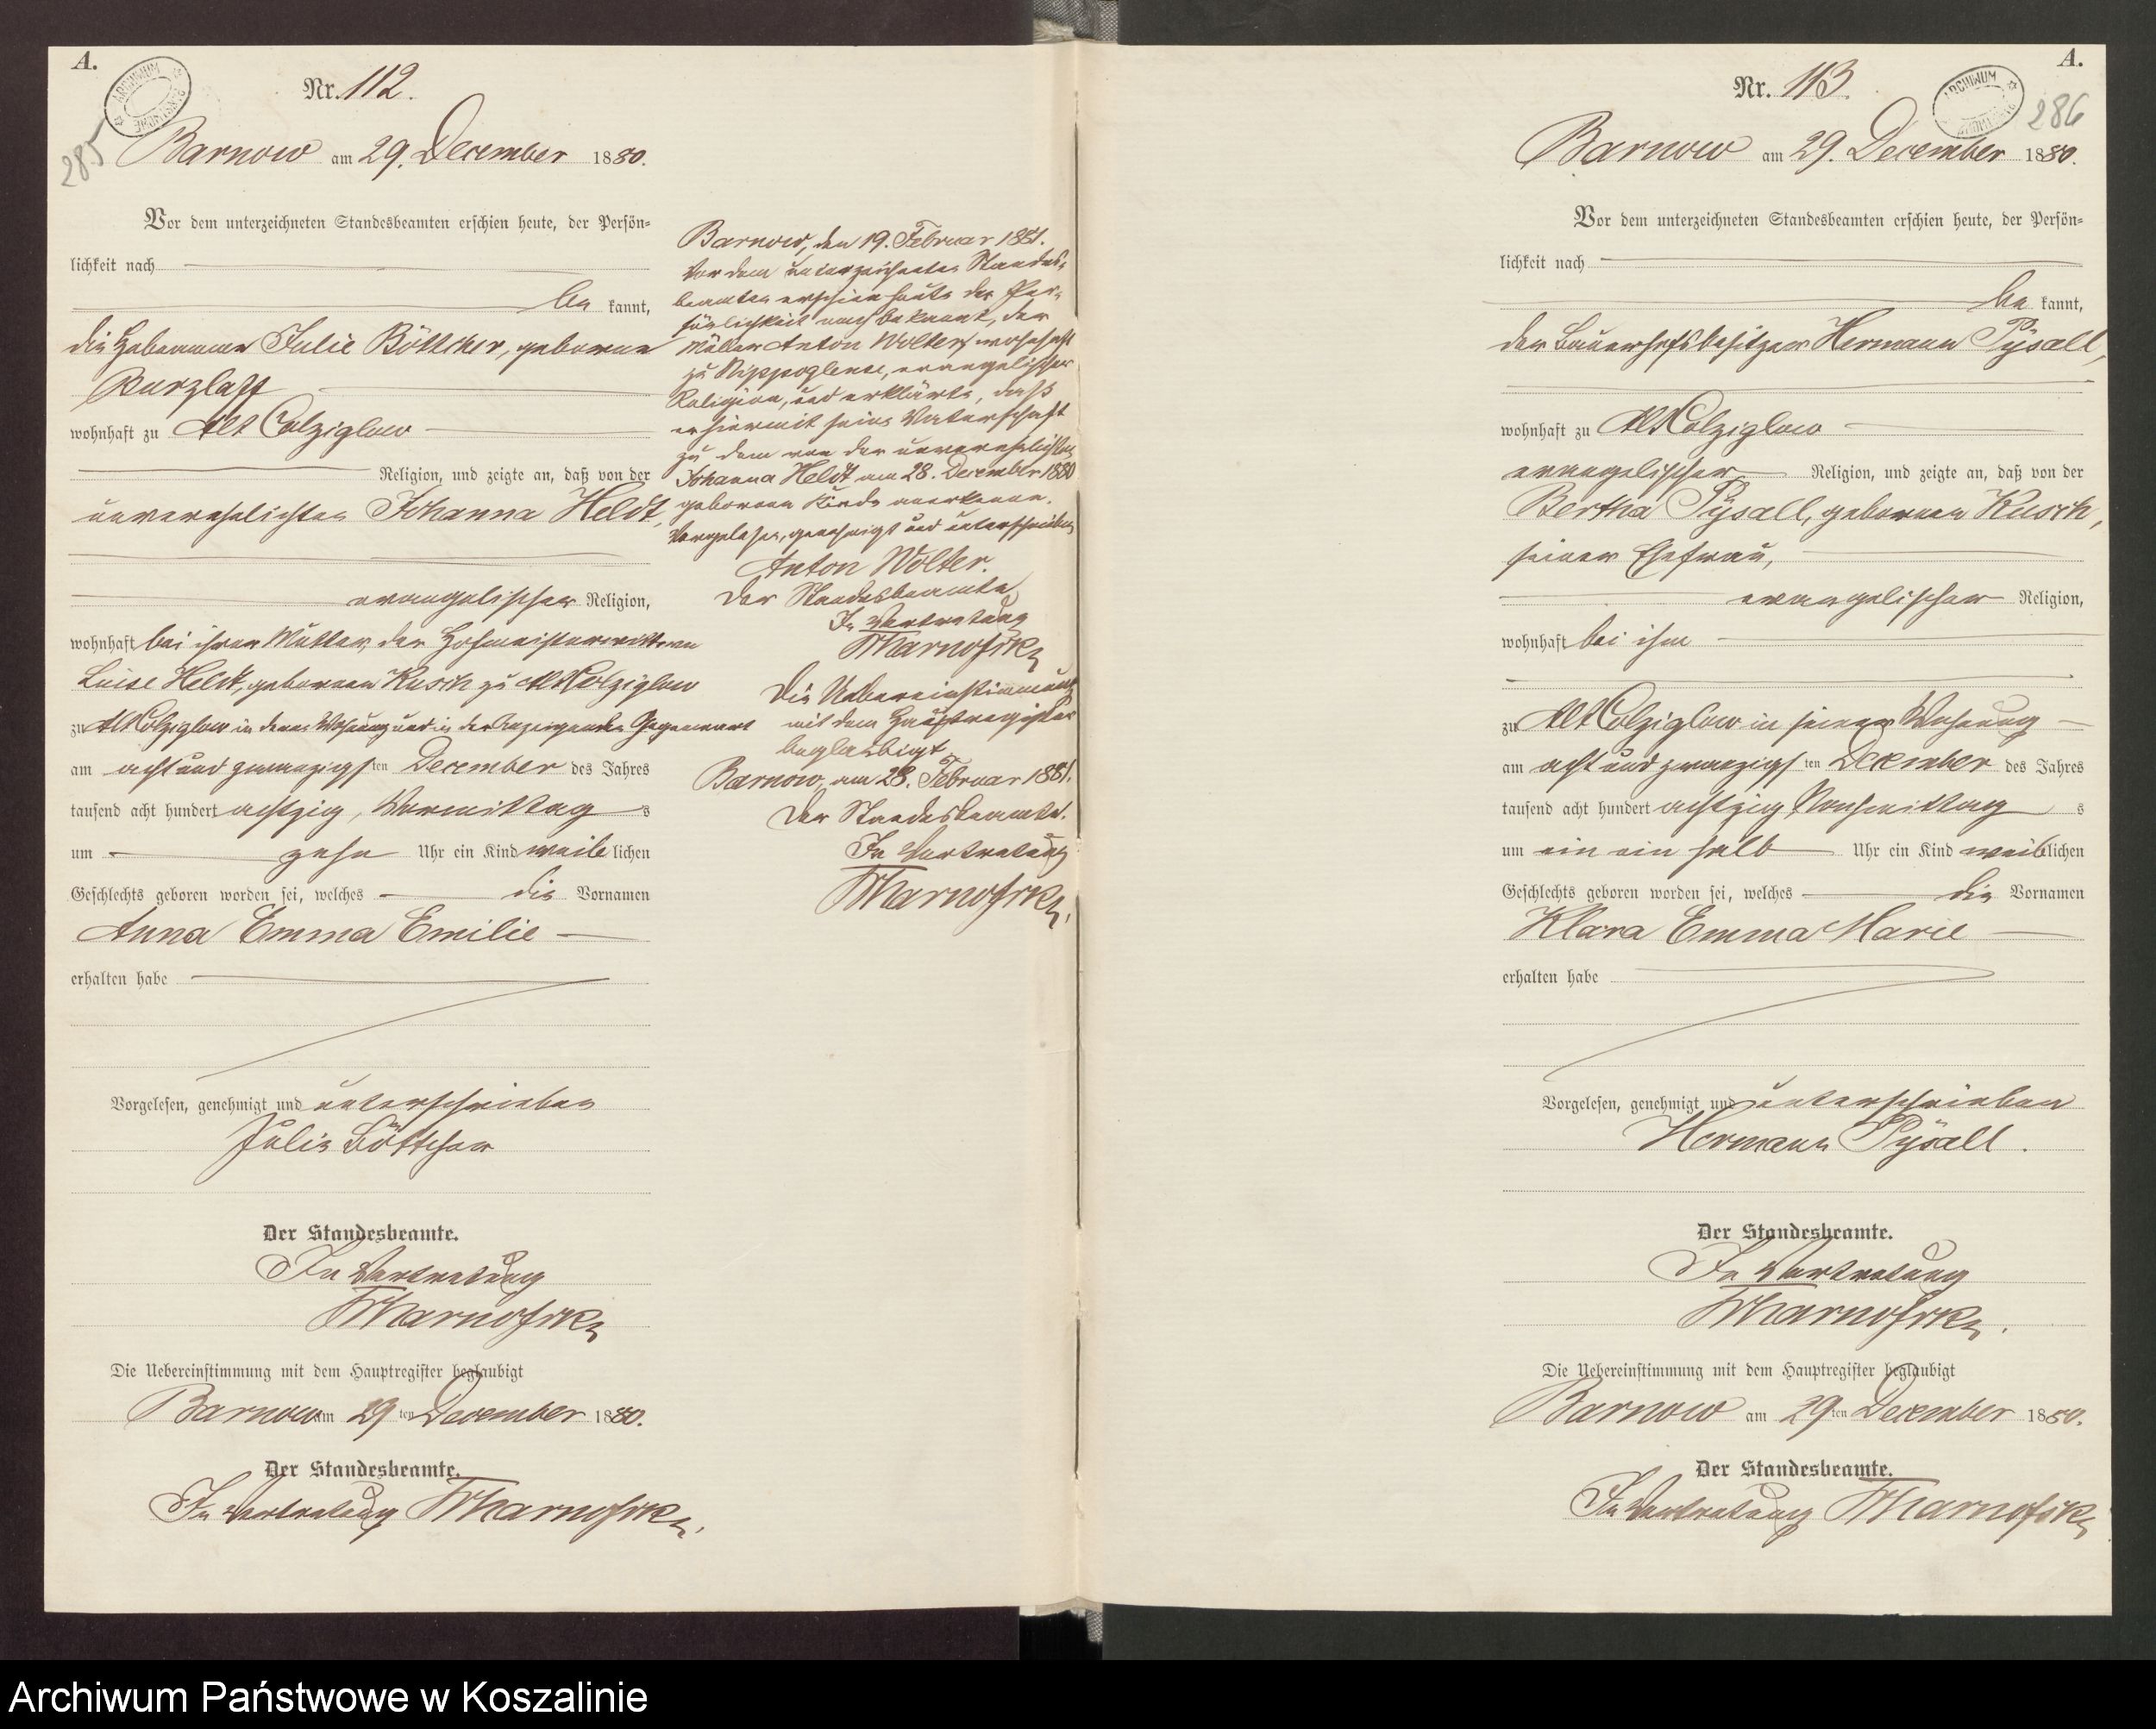 A.
ARCHIWUM
285
Nr. 112.
Barnow am 29. December 1880.
Vor dem unterzeichneten Standesbeamten erschien heute, der Persön-
lichkeit nach
be kannt,
die Hebamme Julie Böttcher, geborene
Kurzlaff
wohnhaft zu Alt Colziglow
Religion, und zeigte an, daß von der
unverehelichten Johanna Heldt,
evangelischer Religion,
wohnhaft bei ihrer Mutter, der Hofmeisterwittwe
Luise Heldt, geborenen Kusch zu Alt Colziglow
zu Alt Colziglow in deren Wohnung und in der Anzeigenden Gegenwart
am acht und zwanzigsten December des Jahres
tausend acht hundert achtzig, Vormittag s
um zehn Uhr ein Kind weiblichen
Geschlechts geboren worden sei, welches die Vornamen
Anna Emma Emilie
erhalten habe
Vorgelesen, genehmigt und unterschrieben
Julie Böttcher
Der Standesbeamte.
In Vertretung
Die Uebereinstimmung mit dem Hauptregister beglaubigt
Barnow am 29 ten December 1880.
Der Standesbeamte.
In Vertretung
Barnow, den 19. Februar 1881.
Vor dem unterzeichneten Standes-
beamten erschien heute der Per-
sönlichkeit nach bekannt, der
Müller Anton Wolter, wohnhaft
zu Nippoglense, evangelischer
Religion, und erklärte, daß
er hiermit seine Vaterschaft
zu dem von der unverehelichten
Johanna Heldt am 28. December 1880
geborenen Kinde anerkenne.
Vorgelesen, genehmigt und unterschrieben
Anton Wolter.
Der Standesbeamte
In Vertretung
Die Uebereinstimmung
mit dem Hauptregister
beglaubigt
Barnow, am 28. Februar 1881.
Der Standesbeamte.
In Vertretung
A.
ARCHIWUM
286
Nr. 113.
Barnow am 29. December 1880.
Vor dem unterzeichneten Standesbeamten erschien heute, der Persön-
lichkeit nach
be kannt,
der Bauerhofsbesitzer Hermann Pysall,
wohnhaft zu Alt Colziglow
evangelischer Religion, und zeigte an, daß von der
Bertha Pysall, geborenen Kusch,
seiner Ehefrau,
evangelischer Religion,
wohnhaft bei ihm
zu Alt Colziglow in seiner Wohnung
am acht und zwanzigsten December des Jahres
tausend acht hundert achtzig Nachmittag s
um ein ein halb Uhr ein Kind weiblichen
Geschlechts geboren worden sei, welches die Vornamen
Klara Emma Marie
erhalten habe
Vorgelesen, genehmigt und unterschrieben
Hermann Pysall.
Der Standesbeamte.
In Vertretung
Die Uebereinstimmung mit dem Hauptregister beglaubigt
Barnow am 29 ten December 1880.
Der Standesbeamte.
In Vertretung
Archiwum Państwowe w Koszalinie